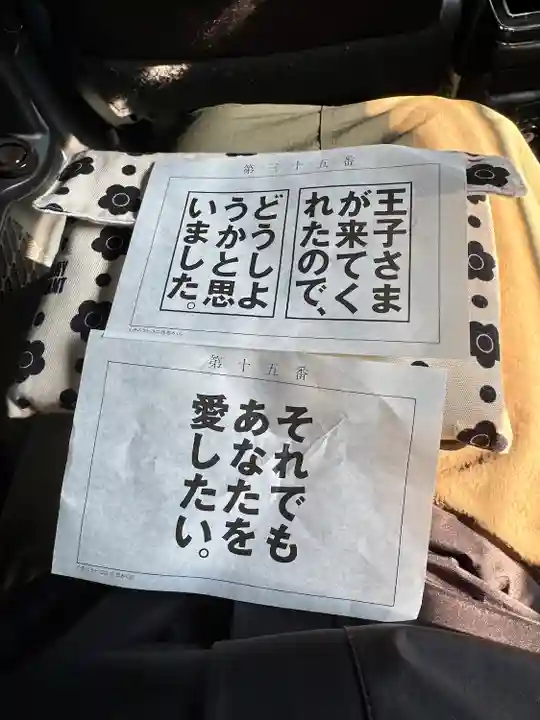 第三十五番
王子さま
が来てく
れたので、
どうしよ
うかと思
いました。
第十五番
それでも
あなたを
愛したい。